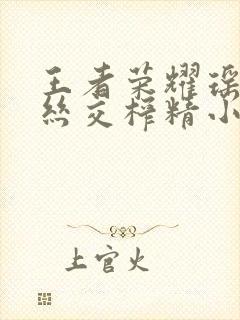 王者荣耀瑶
丝交榨精小
上官火